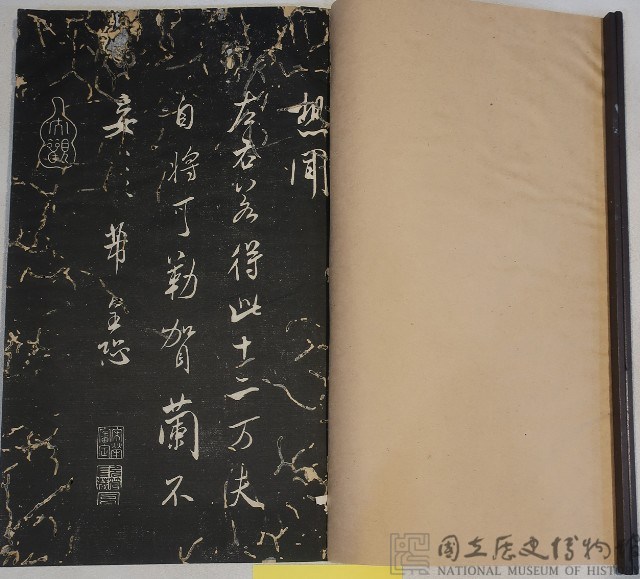 想聞
左右若得此十二万夫
自將可勒賀蘭不
妄〻〻芾皇恐
國立歷史博物館
NATIONAL MUSEUM OF HISTO